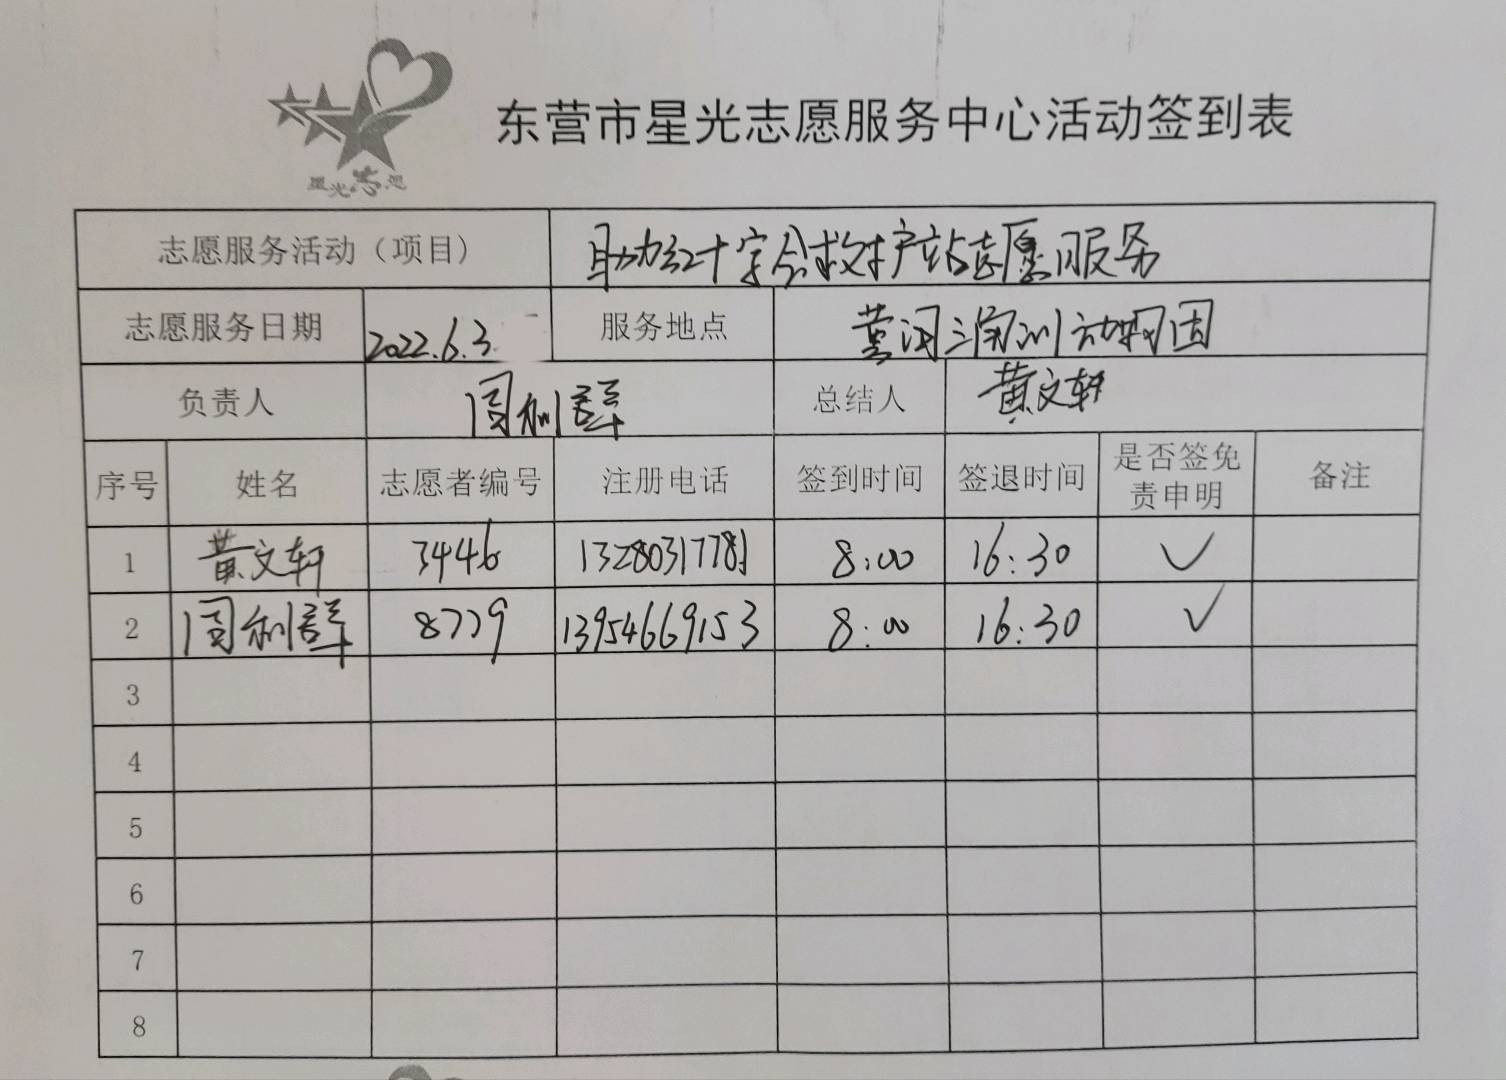 星光志愿
东营市星光志愿服务中心活动签到表
志愿服务活动（项目） 助力红十字会救护站志愿服务
志愿服务日期 2022.6.3 服务地点 黄河三角洲动物园
负责人 周利群 总结人 黄文轩
序号 姓名 志愿者编号 注册电话 签到时间 签退时间 是否签免责申明 备注
1 黄文轩 3446 13280317781 8:00 16:30 ✓
2 周利群 8779 13954669153 8:00 16:30 ✓
3
4
5
6
7
8